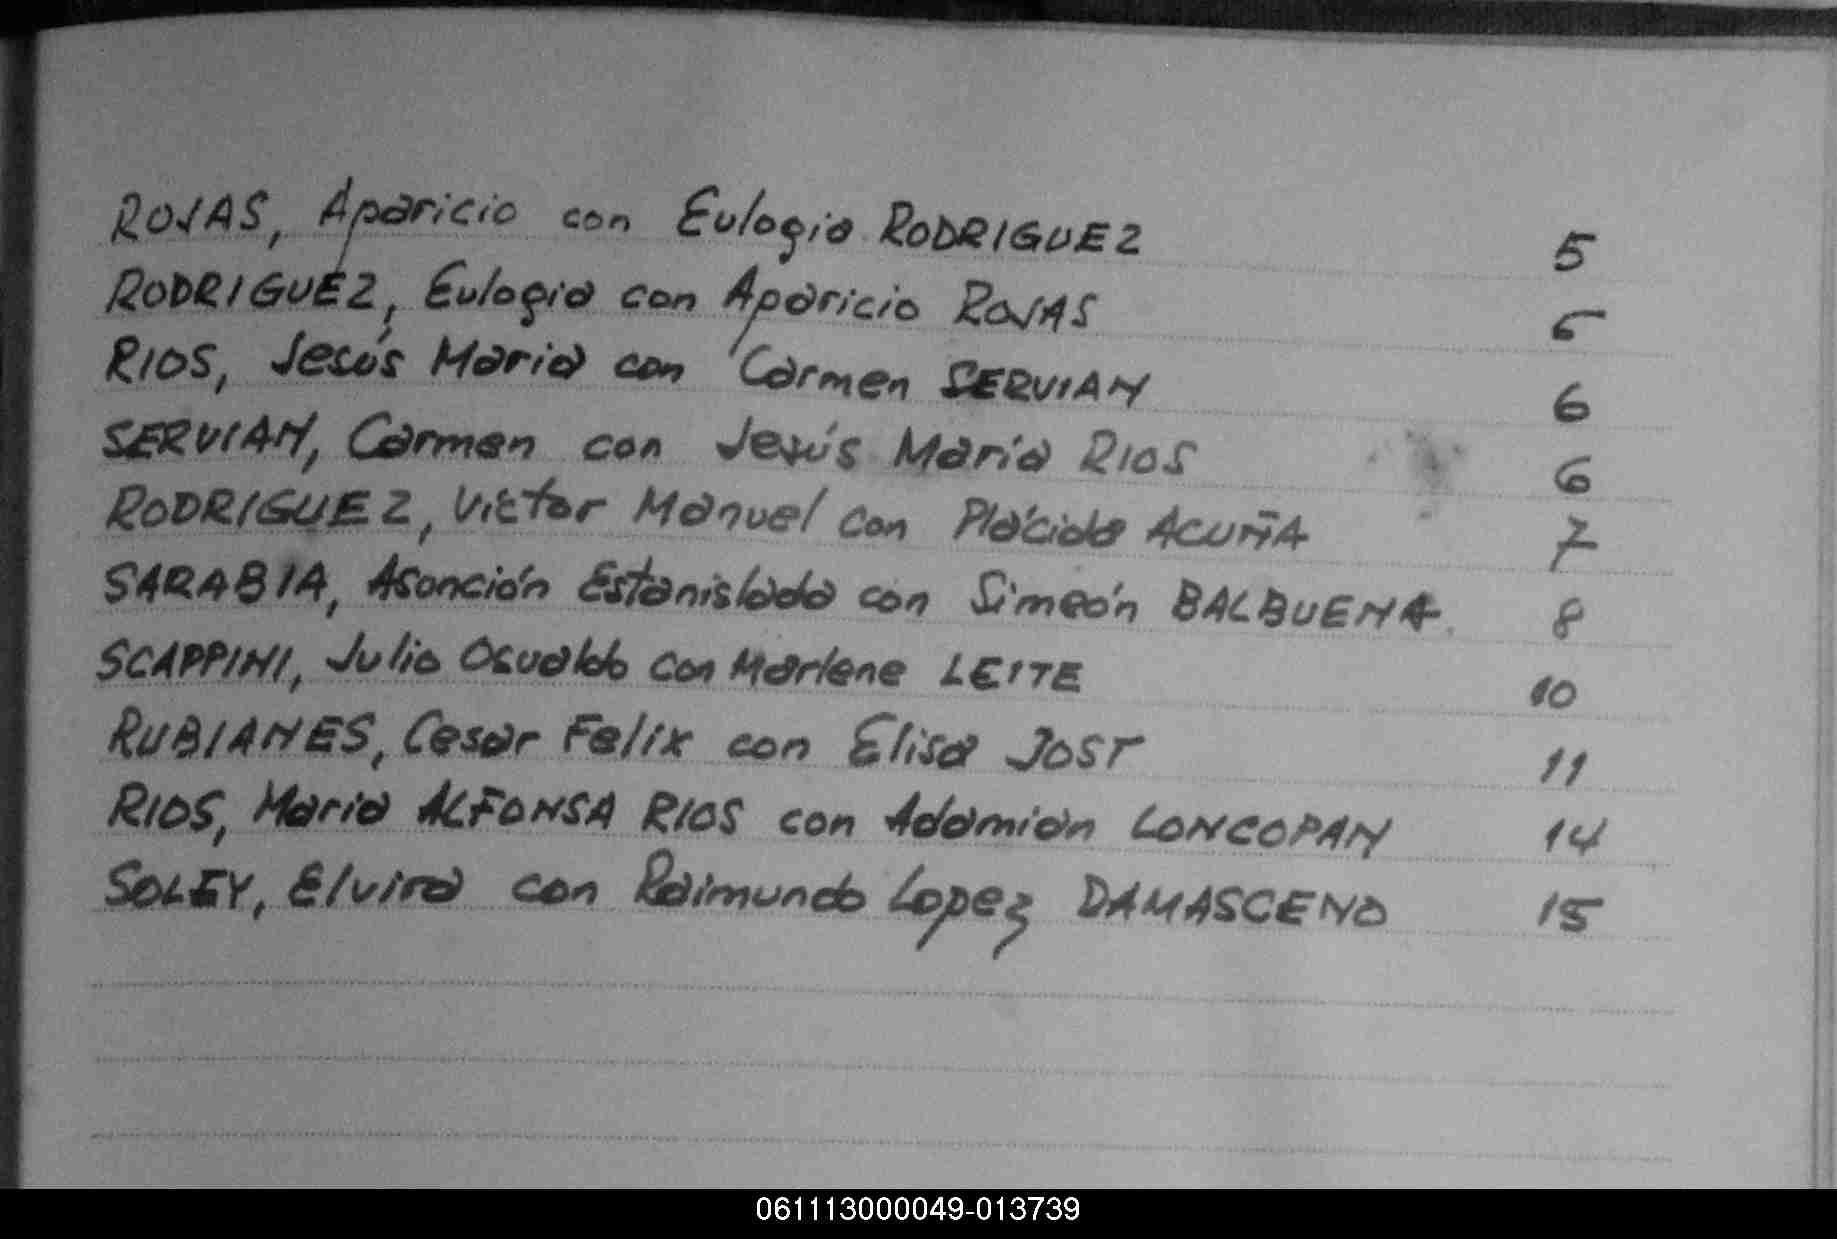 ROJAS, Aparicio con Eulogio RODRIGUEZ 5
RODRIGUEZ, Eulogio con Aparicio ROJAS 5
RIOS, Jesús Maria con Carmen SERVIAN 6
SERVIAN, Carmen con Jesús María RIOS 6
RODRIGUEZ, Victor Manuel con Plácido ACUÑA 7
SARABIA, Asunción Estanislada con Simeón BALBUENA 8
SCAPPINI, Julio Osvaldo con Marlene LEITE 10
RUBIANES, Cesar Felix con Elisa JOST 11
RIOS, Maria ALFONSA RIOS con Adamián LONCOPAN 14
SOLEY, Elvira con Raimundo Lopez DAMASCENO 15
061113000049-013739